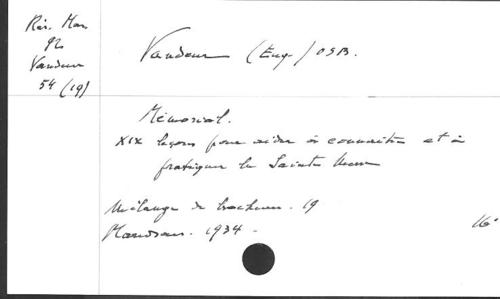 Rés. Mar.
96
Vandeur
54 (19)
Vandeur (Eug.) OSB.
Mémorial.
XIX leçons pour aider à connaître et à
pratiquer la Sainte Messe
Mélange de brochures. 19
Maredsous. 1934.
16°